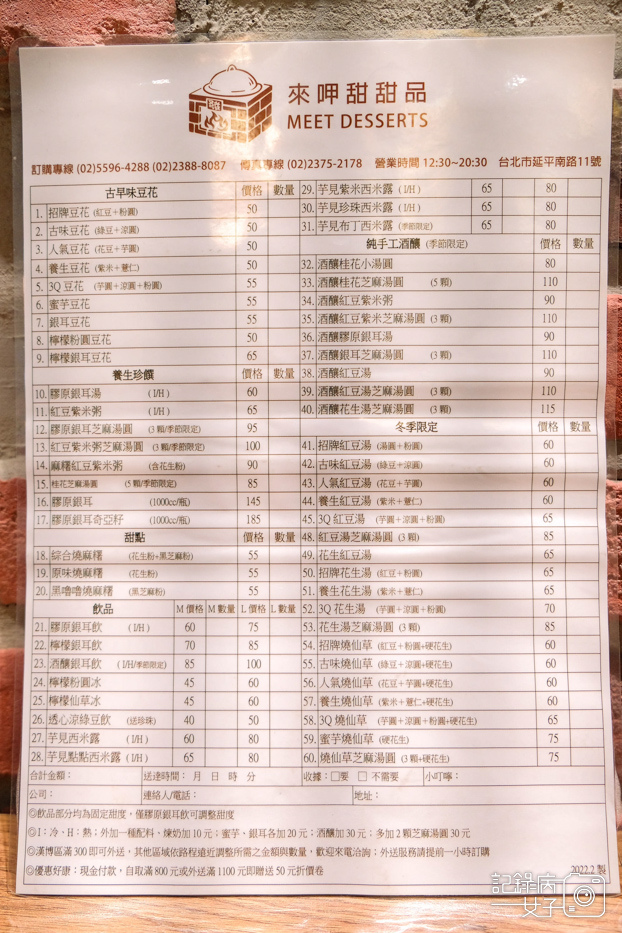 來呷甜甜品
MEET DESSERTS
訂購專線 (02)5596-4288 (02)2388-8087 傳真專線 (02)2375-2178 營業時間 12:30~20:30 台北市延平南路11號
古早味豆花 價格 數量
1. 招牌豆花 (紅豆+粉圓) 50
2. 古味豆花 (綠豆+涼圓) 50
3. 人氣豆花 (花豆+芋圓) 50
4. 養生豆花 (紫米+薏仁) 50
5. 3Q 豆花 (芋圓+涼圓+粉圓) 55
6. 蜜芋豆花 55
7. 銀耳豆花 55
8. 檸檬粉圓豆花 50
9. 檸檬銀耳豆花 65
養生珍饌 價格 數量
10. 膠原銀耳湯 (I/H) 60
11. 紅豆紫米粥 (I/H) 65
12. 膠原銀耳芝麻湯圓 (3顆/季節限定) 95
13. 紅豆紫米粥芝麻湯圓 (3顆/季節限定) 100
14. 麻糬紅豆紫米粥 (含花生粉) 90
15. 桂花芝麻湯圓 (5顆/季節限定) 85
16. 膠原銀耳 (1000cc/瓶) 145
17. 膠原銀耳奇亞籽 (1000cc/瓶) 185
甜點 價格 數量
18. 綜合燒麻糬 (花生粉+黑芝麻粉) 55
19. 原味燒麻糬 (花生粉) 55
20. 黑嚕嚕燒麻糬 (黑芝麻粉) 55
飲品 M價格 M數量 L價格 L數量
21. 膠原銀耳飲 (I/H) 60 75
22. 檸檬銀耳飲 70 85
23. 酒釀銀耳飲 (I/H/季節限定) 85 100
24. 檸檬粉圓冰 45 60
25. 檸檬仙草冰 45 60
26. 透心涼綠豆飲 (送珍珠) 40 50
27. 芋見西米露 (I/H) 60 80
28. 芋見點點西米露 (I/H) 65 80
29. 芋見紫米西米露 (I/H) 65 80
30. 芋見珍珠西米露 (I/H) 65 80
31. 芋見布丁西米露 (季節限定) 65 80
純手工酒釀 (季節限定) 價格 數量
32. 酒釀桂花小湯圓 80
33. 酒釀桂花芝麻湯圓 (5顆) 110
34. 酒釀紅豆紫米粥 90
35. 酒釀紅豆紫米芝麻湯圓 (3顆) 110
36. 酒釀膠原銀耳湯 90
37. 酒釀銀耳芝麻湯圓 (3顆) 110
38. 酒釀紅豆湯 90
39. 酒釀紅豆湯芝麻湯圓 (3顆) 110
40. 酒釀花生湯芝麻湯圓 (3顆) 115
冬季限定 價格 數量
41. 招牌紅豆湯 (湯圓+粉圓) 60
42. 古味紅豆湯 (綠豆+涼圓) 60
43. 人氣紅豆湯 (花豆+芋圓) 60
44. 養生紅豆湯 (紫米+薏仁) 60
45. 3Q 紅豆湯 (芋圓+涼圓+粉圓) 65
48. 紅豆湯芝麻湯圓 (3顆) 85
49. 花生紅豆湯 65
50. 招牌花生湯 (紅豆+粉圓) 65
51. 養生花生湯 (紫米+薏仁) 65
52. 3Q 花生湯 (芋圓+涼圓+粉圓) 70
53. 花生湯芝麻湯圓 (3顆) 85
54. 招牌燒仙草 (紅豆+粉圓+硬花生) 60
55. 古味燒仙草 (綠豆+涼圓+硬花生) 60
56. 人氣燒仙草 (花豆+芋圓+硬花生) 60
57. 養生燒仙草 (紫米+薏仁+硬花生) 60
58. 3Q 燒仙草 (芋圓+涼圓+粉圓+硬花生) 65
59. 蜜芋燒仙草 (硬花生) 75
60. 燒仙草芝麻湯圓 (3顆+硬花生) 75
合計金額： 送達時間： 月 日 時 分 收據：□要 □不需要 小叮嚀：
公司： 連絡人/電話： 地址：
◎飲品部分均為固定甜度，僅膠原銀耳飲可調整甜度
◎I：冷、H：熱；外加一種配料、煉奶加10元；蜜芋、銀耳各加20元；酒釀加30元；多加2顆芝麻湯圓30元
◎漢博區滿300即可外送，其他區域依路程遠近調整所需之金額與數量，歡迎來電洽詢；外送服務請提前一小時訂購
◎優惠好康：現金付款，自取滿800元或外送滿1100元即贈送50元折價卷
2022.2 製
記錄肉女子